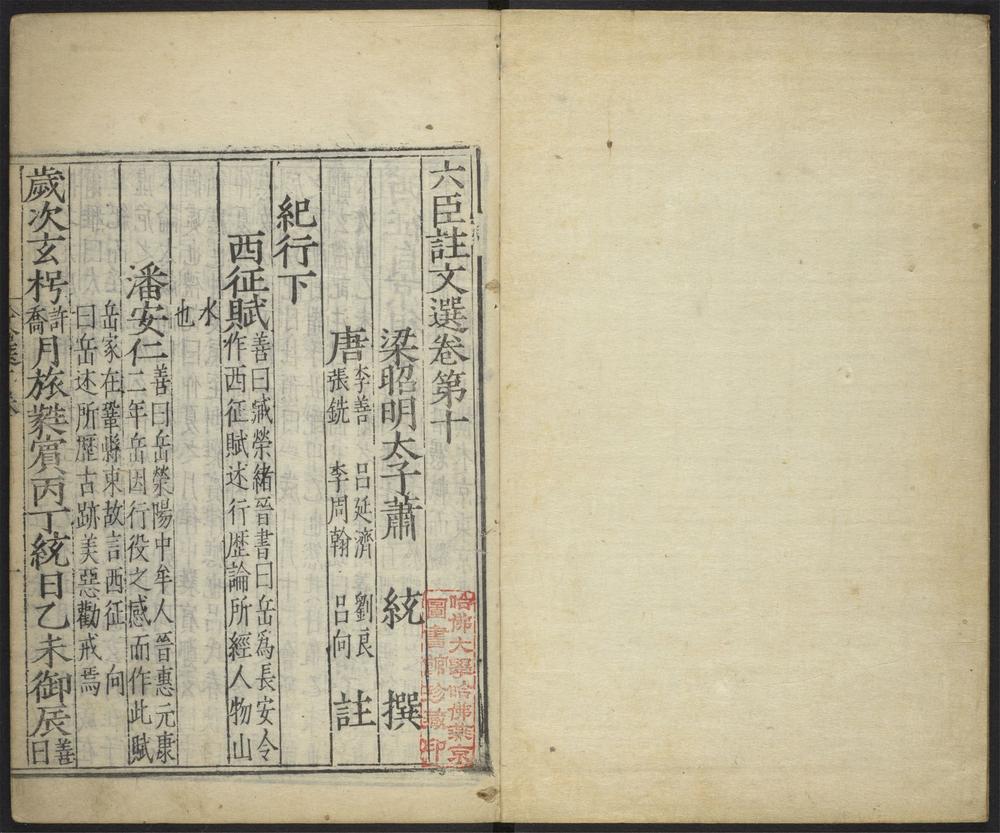 六臣註文選卷第十
梁昭明太子蕭統撰
唐李善 呂延濟 劉良
張銑 李周翰 呂向 註
紀行下
西征賦善曰臧榮緒晉書曰岳為長安令
作西征賦述行歷論所經人物山
水
也
潘安仁善曰岳滎陽中牟人晉惠元康
二年岳因行役之感而作此賦
岳家在鞏縣東故言西征 向
曰岳述所歷古跡美惡勸戒焉
歲次玄枵許
喬月旅蕤賓丙丁統日乙未御辰善
曰
哈佛大學哈佛燕京
圖書館珍藏印